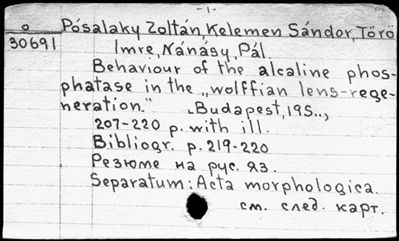 -1-
o Pósalaky Zoltán, Kelemen Sándor, Törö
30691 Imre, Nánásy, Pál.
Behaviour of the alcaline phos-
phatase in the „wolffian lens-rege-
neration." Budapest, 195..,
207-220 p. with ill.
Bibliogr. p. 219-220
Резюме на рус. яз.
Separatum: Acta morphologica.
см. след. карт.